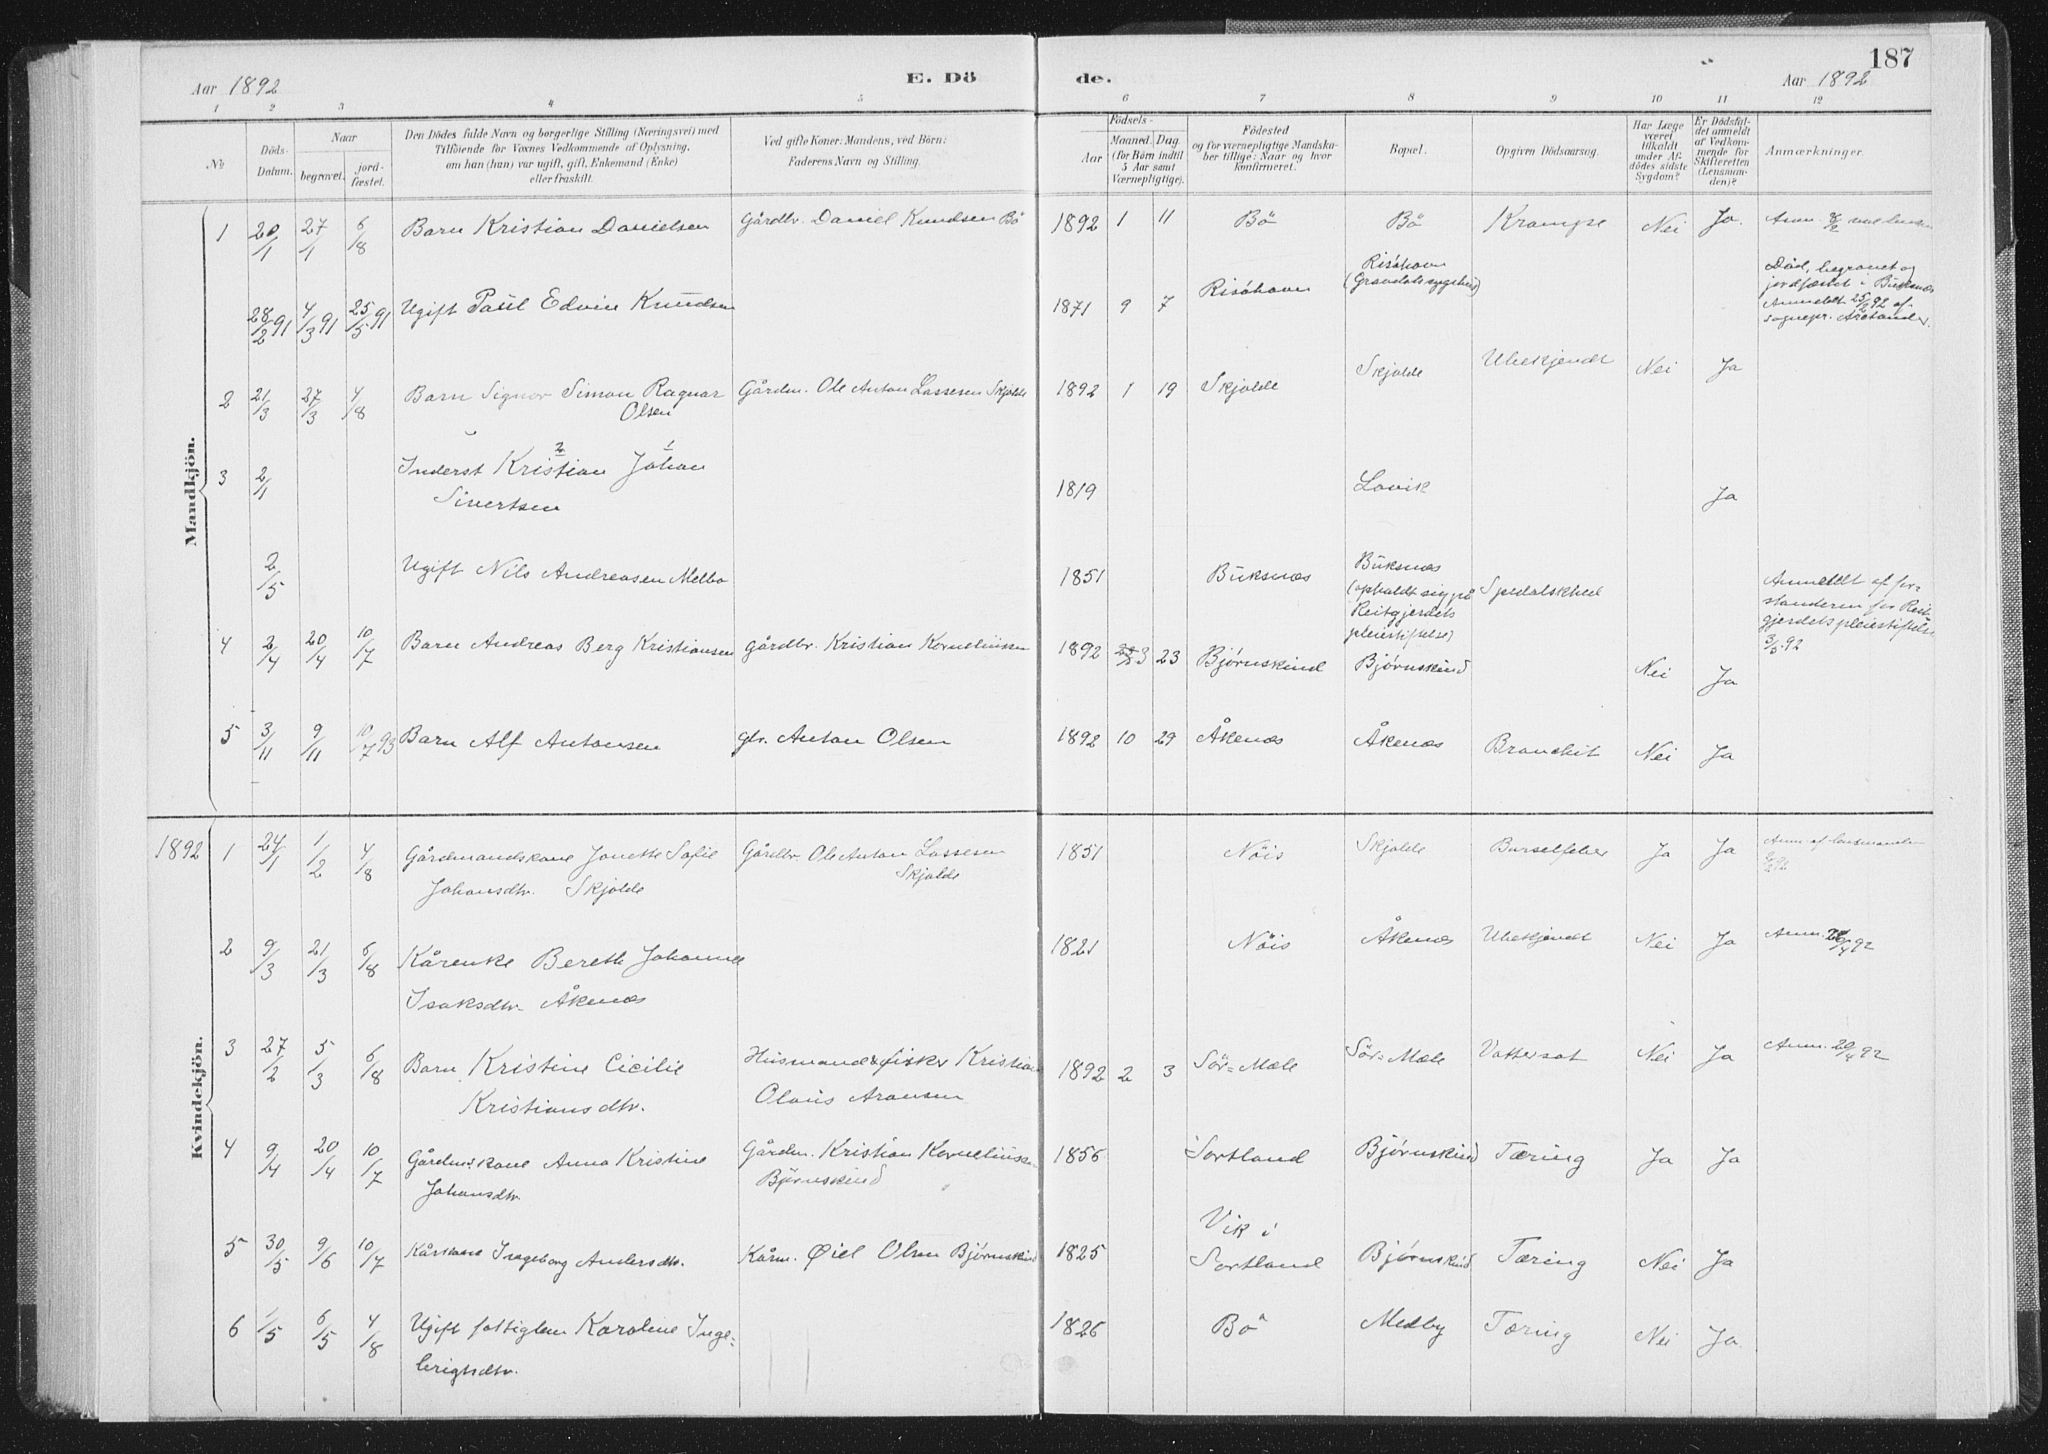 187
Aar 1892
E. Dö
de.
Aar 1892
1 2 3 4 5 6 7 8 9 10 11 12
№
Döds-
Datum.
Naar
begravet.
jord-
fæstet.
Den Dödes fulde Navn og borgerlige Stilling (Næringsvei) med
Tilföiende for Voxnes Vedkommende af Oplysning,
om han (hun) var ugift, gift, Enkemand (Enke)
eller fraskilt.
Ved gifte Koner: Mandens, ved Börn:
Faderens Navn og Stilling.
Födsels-
Aar
Maaned
Dag
(for Börn indtil
5 Aar samt
Værnepligtige).
Födested
og for værnepligtige Mandska-
ber tillige: Naar og hvor
konfirmeret.
Bopæl.
Opgiven Dödsaarsag.
Har Læge
været
tilkaldt
under Af-
dödes sidste
Sygdom?
Er Dödsfal-
det anmeldt
af Vedkom-
mende for
Skifteretten
(Lensman-
den)?
Anmærkninger.
Mandkjön.
1 20/1 27/1 6/8 Barn Kristian Danielsen Gårdbr. Daniel Knudsen Bö 1892 1 11 Bö Bö Krampe Nei Ja.
28/2 91 4/3 91 25/5 91 Ugift Paul Edvin Knudsen 1871 9 7 Risöhavn
Risöhavn
(Gravdals sygehus)
Död, begravet og
jordfæstet i Buksnæs
Anmeldt 25/2 92 af
sognepr.
2 21/3 27/3 4/8 Barn Signor Simon Ragnar Gårdm. Ole Anton Lassesen Skjolde 1892 1 19 Skjolde Skjolde Ubekjendt Nei Ja
Olsen
3 2/1 Inderst Kristian Johan 1819 Lovik Ja
2 1
Sivertsen
2/5 Ugift Nils Andreasen Melbo 1851 Buksnæs Buksnæs
(opholdt sig på
Reitgjerdets
pleiestiftelse)
Spedalskhed
Anmeldt af for-
standeren for Reit-
gjerdets pleiestiftelse
3/5 92
4 2/4 20/4 10/7 Barn Andreas Berg Kristiansen Gårdbr. Kristian Korneliussen 1892 3 23 Bjørnskind Bjørnskind Nei Ja
5 3/11 9/11 10/7 93 Barn Alf Antonsen gbr. Anton Olsen 1892 10 29 Åkenæs Åkenæs Bronchit Nei Ja
Kvindekjön.
1892 1 24/1 1/2 4/8 Gårdmandskone Jonette Sofie Gårdbr. Ole Anton Lassesen 1851 Nöis Skjolde Barselfeber Ja Ja Anm. af lensmanden
Johansdtr. Skjolde Skjolde
2 9/3 21/3 6/8 Kårenke Bereth Johanna 1821 Nöis Åkenæs Ubekjendt Nei Ja
Isaksdtr. Åkenæs
3 27/2 5/3 6/8 Barn Kristine Cicilie Husmand & fisker Kristian 1892 2 3 Sör=Mæle Sör=Mæle Vattersot Nei Ja Anm. 29/4 92
Kristiansdtr. Olaus Aronsen
4 9/4 20/4 10/7 Gårdmskone Anna Kristine Gårdm. Kristian Korneliussen 1856 Sortland Bjørnskind Tæring Ja Ja
Johansdtr. Björnskind
5 30/5 9/6 10/7 Kårkone Ingeborg Andersdtr. Kårm. Øiel Olsen Bjørnskind 1825 Vik i
Sortland Bjørnskind Tæring Nei Ja
6 1/5 6/5 4/8 Ugift fattiglem Karoline Inge- 1826 Bö Medby Tæring Nei Ja.
brigtsdtr.